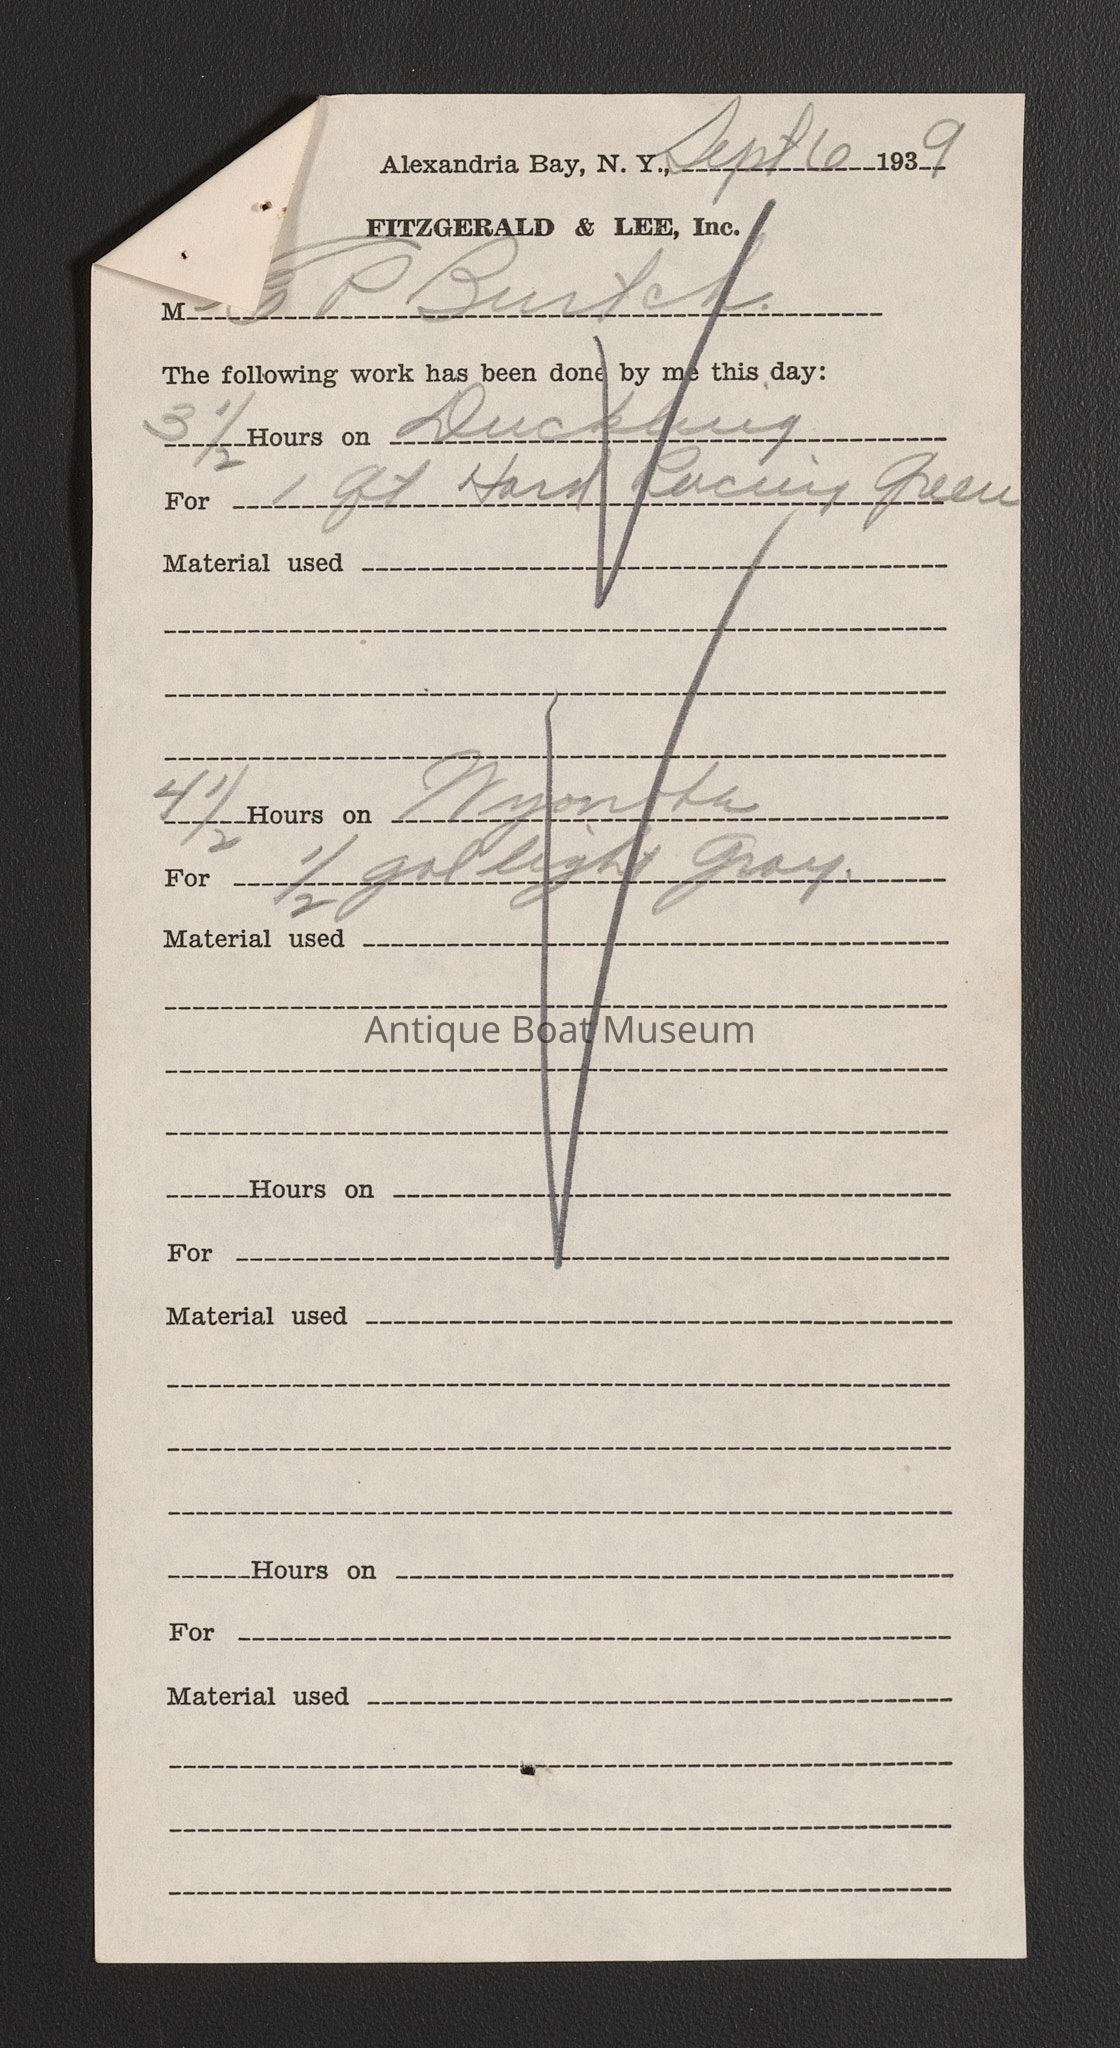 Alexandria Bay, N. Y., Sept 6 1939
FITZGERALD & LEE, Inc.
M P Burtch.
The following work has been done by me this day:
3 1/2 Hours on Duckling
For 1 Qt Hard Racing Green
Material used
4 1/2 Hours on
For 1/2 gal light Gray.
Material used
Antique Boat Museum
Hours on
For
Material used
Hours on
For
Material used